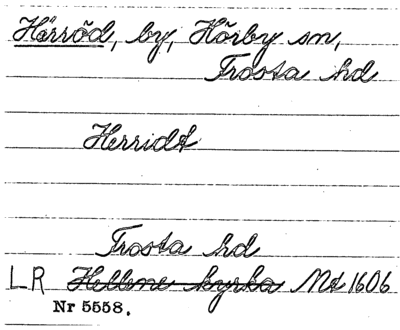 Härröd, by, Hörby sn,
Frosta hd
Herridt
Frosta hd
LR Hellene kyrka Mt 1606
Nr 5558.